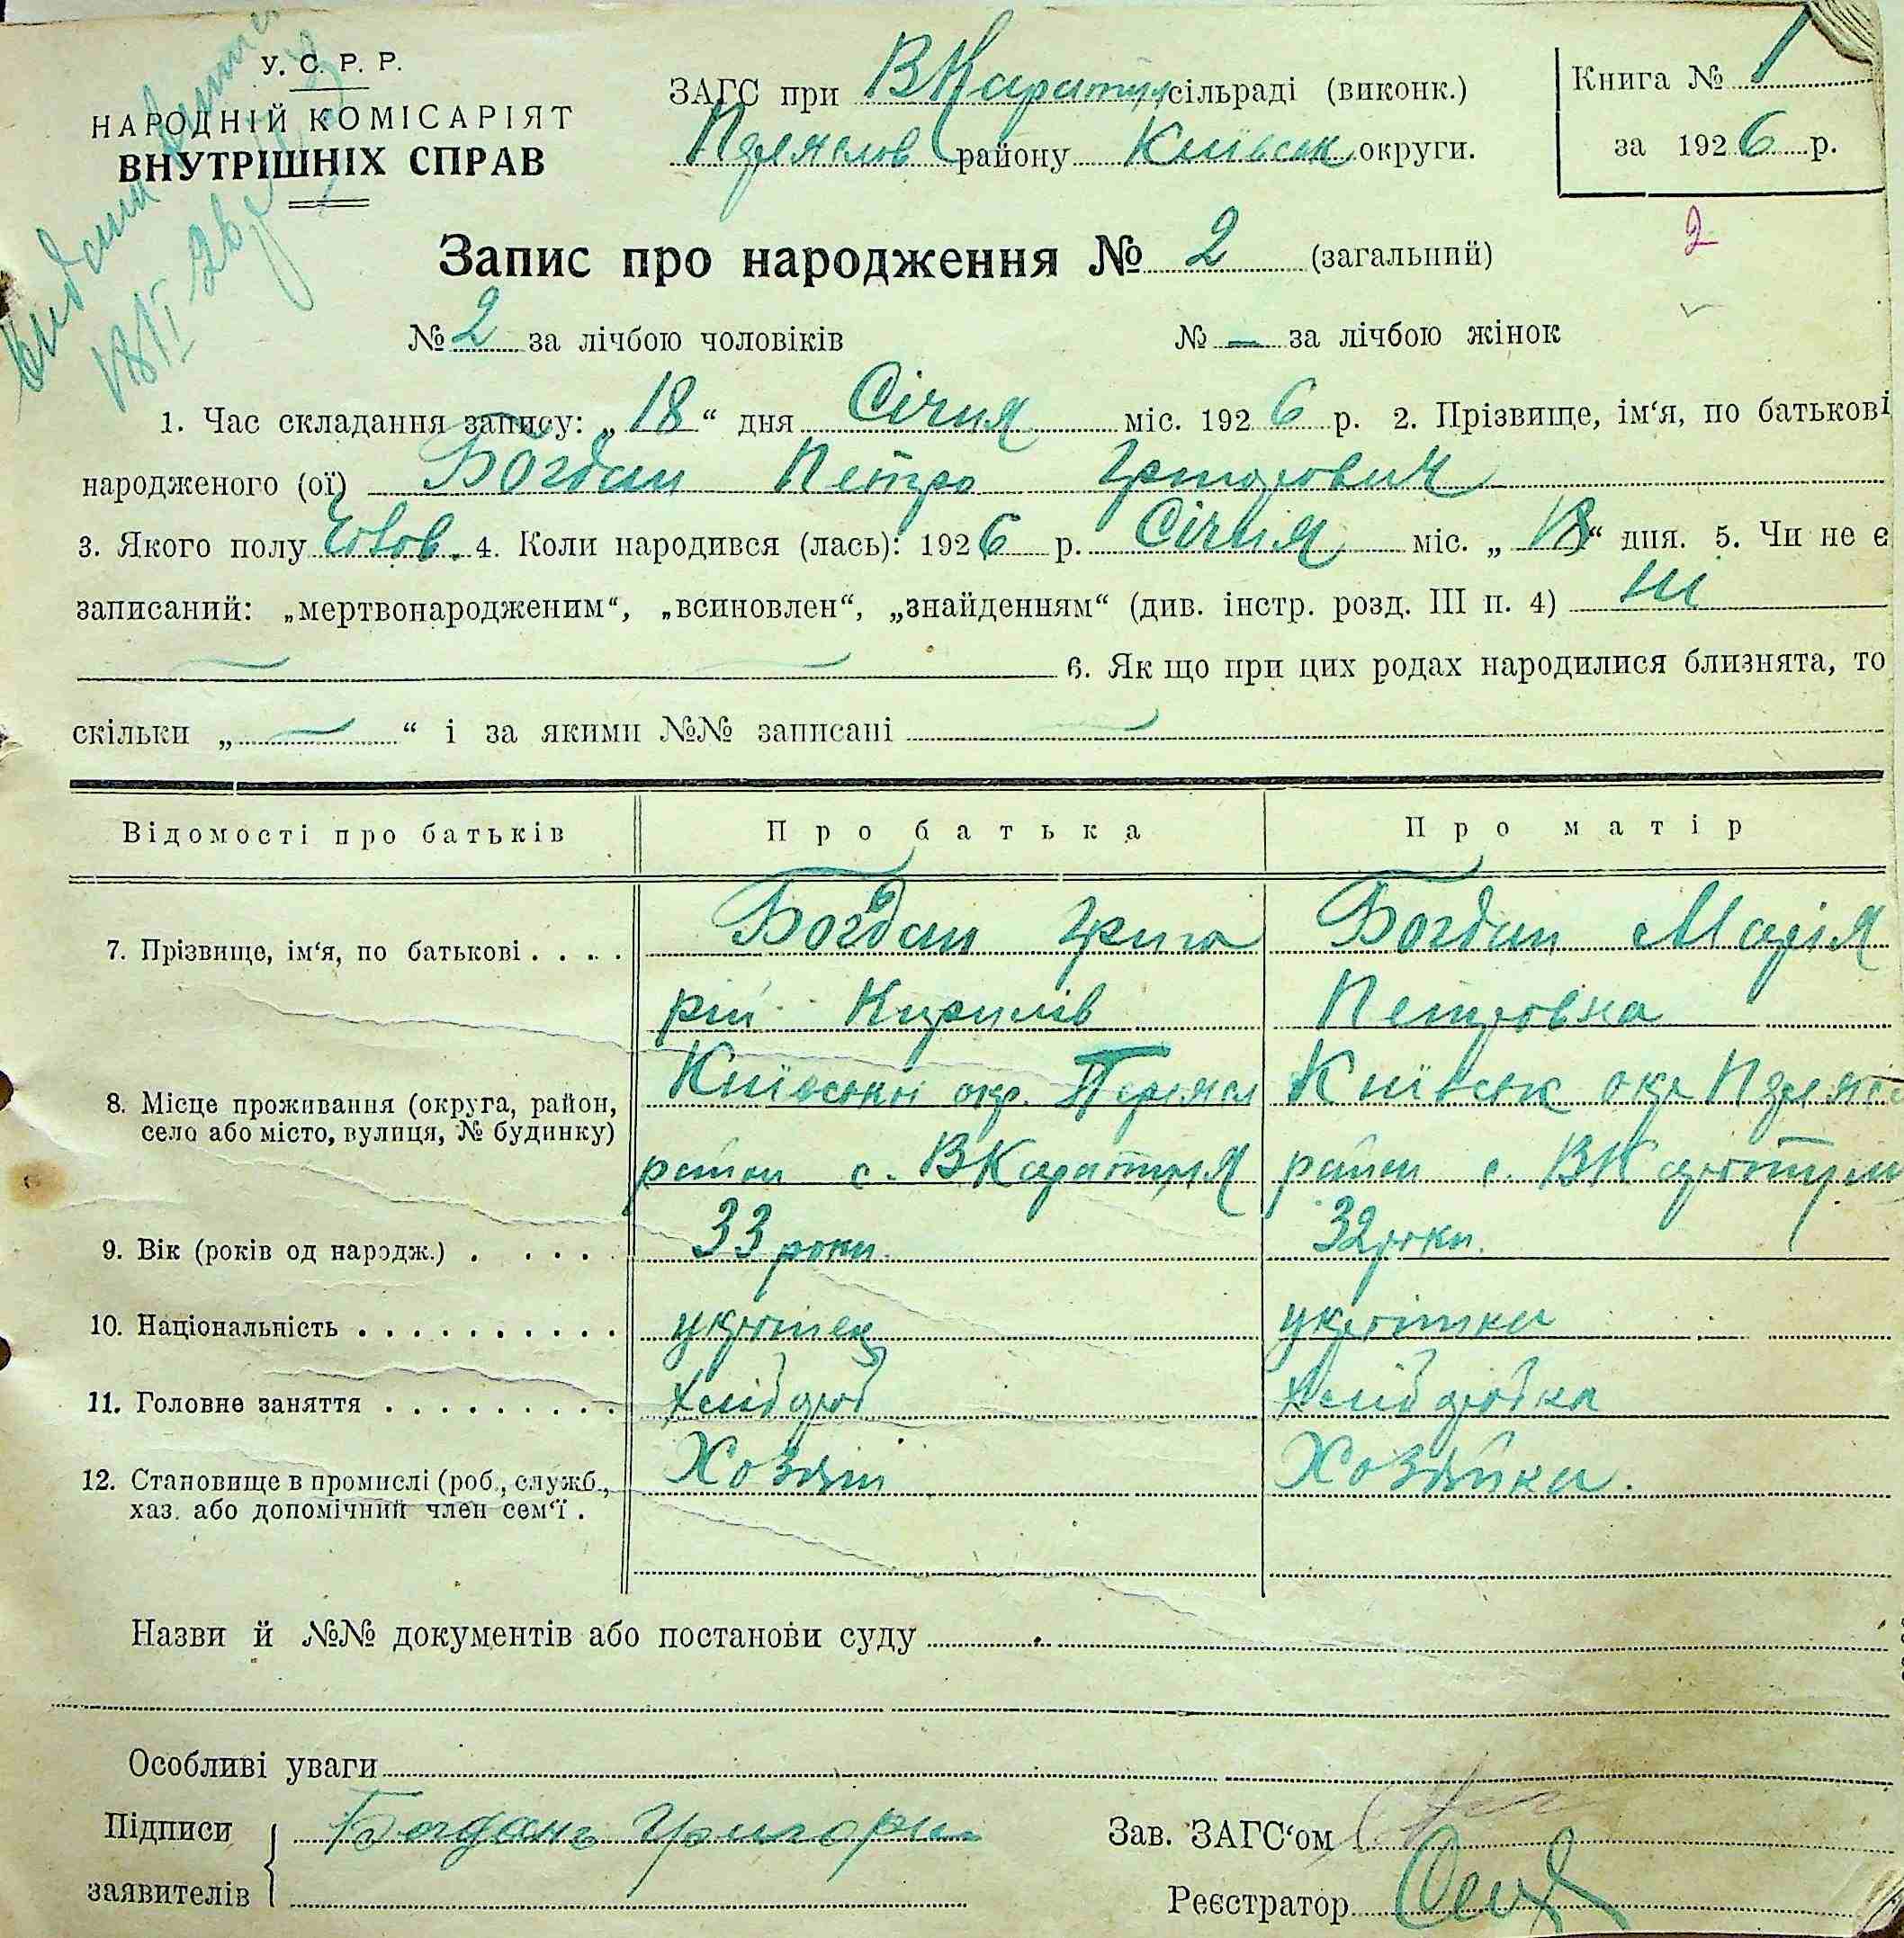 У. С. Р. Р.
НАРОДНІЙ КОМІСАРІЯТ
ВНУТРІШНІХ СПРАВ
ЗАГС при ВКаратул сільраді (виконк.)
району Київськ округи.
Книга № 1
за 1926 р.
Запис про народження № 2 (загальний)
2
№ 2 за лічбою чоловіків № — за лічбою жінок
1. Час складання запису: „18“ дня Січня міс. 1926 р. 2. Прізвище, ім‘я, по батькові
народженого (ої) Богдан Петро Григорович
3. Якого полу Чолов. 4. Коли народився (лась): 1926 р. Січня міс. „18“ дня. 5. Чи не є
записаний: „мертвонародженим“, „всиновлен“, „знайденням“ (див. інстр. розд. III п. 4) ні
6. Як що при цих родах народилися близнята, то
скільки „ — “ і за якими №№ записані —
Відомості про батьків Про батька Про матір
7. Прізвище, ім‘я, по батькові . . . . Богдан Григо Богдан Марія
рій Кирилів Петровна
8. Місце проживання (округа, район, село або місто, вулиця, № будинку) Київської окр. Переясл Київськ окр
район с. ВКаратуля район с. ВКаратул
9. Вік (років од народж.) . . . . . 33 роки 32 роки.
10. Національність . . . . . . . . . . українец українка
11. Головне заняття . . . . . . . . . хлібороб хлібробка
12. Становище в промислі (роб., служб., хаз. або допомічний член сем‘ї . Хозяін Хозяйка.
Назви й №№ документів або постанови суду
Особливі уваги
Підписи заявителів Богданъ Григорий
Зав. ЗАГС‘ом
Реєстратор